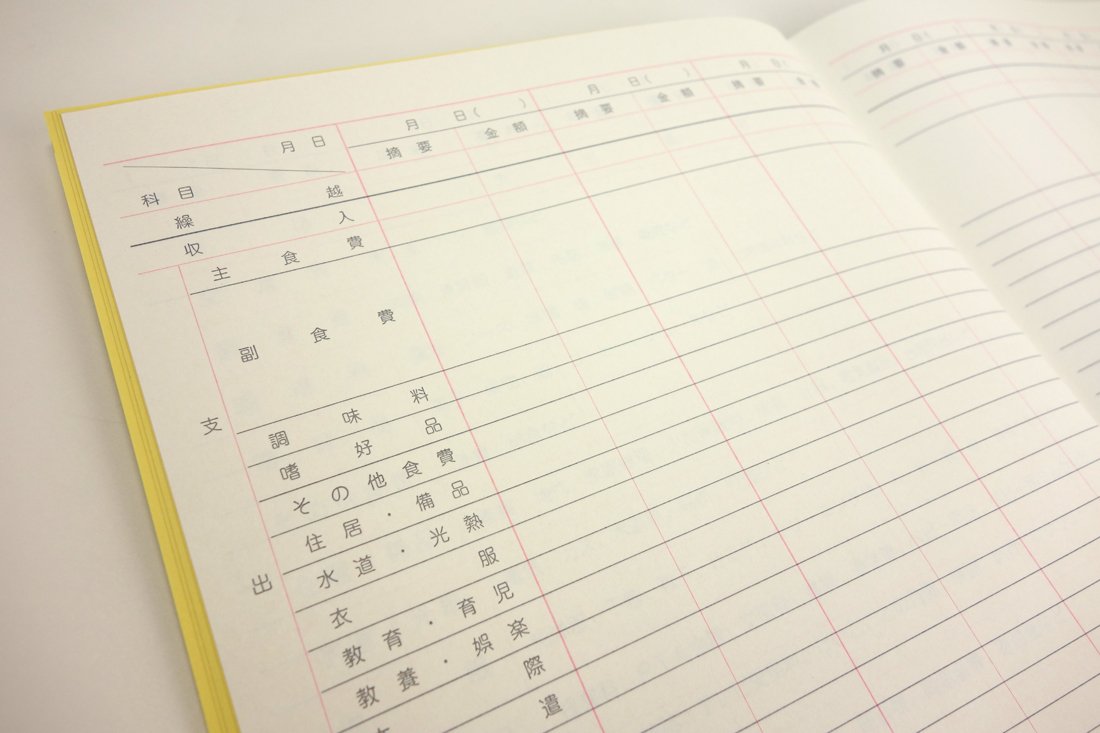 月 日 月 日( ) 月 日( ) 月 日(
摘 要 金 額 摘 要 金 額 摘 要
科 目
繰 越
収 入
支 出
主 食 費
副 食 費
調 味 料
嗜 好 品
その他食費
住居・備品
水道・光熱
衣 服
教育・育児
教養・娯楽
際
遣
月 日( )
摘 要 金 額